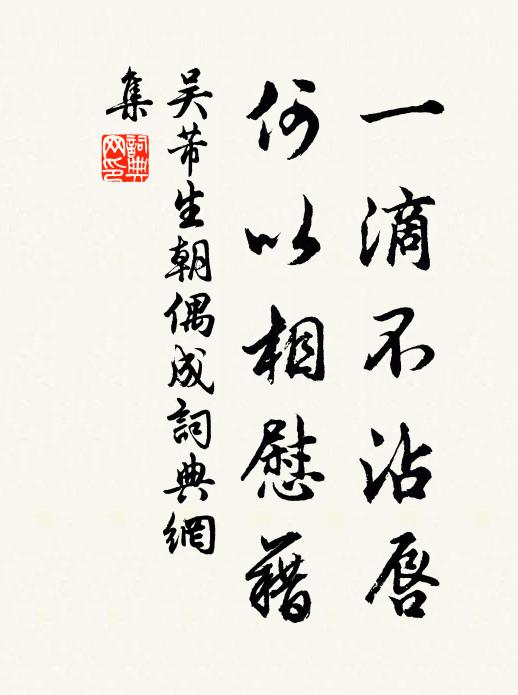 一滴不沾唇
何以相慰藉
吳芾生朝偶成詞典網
集
詞典網印